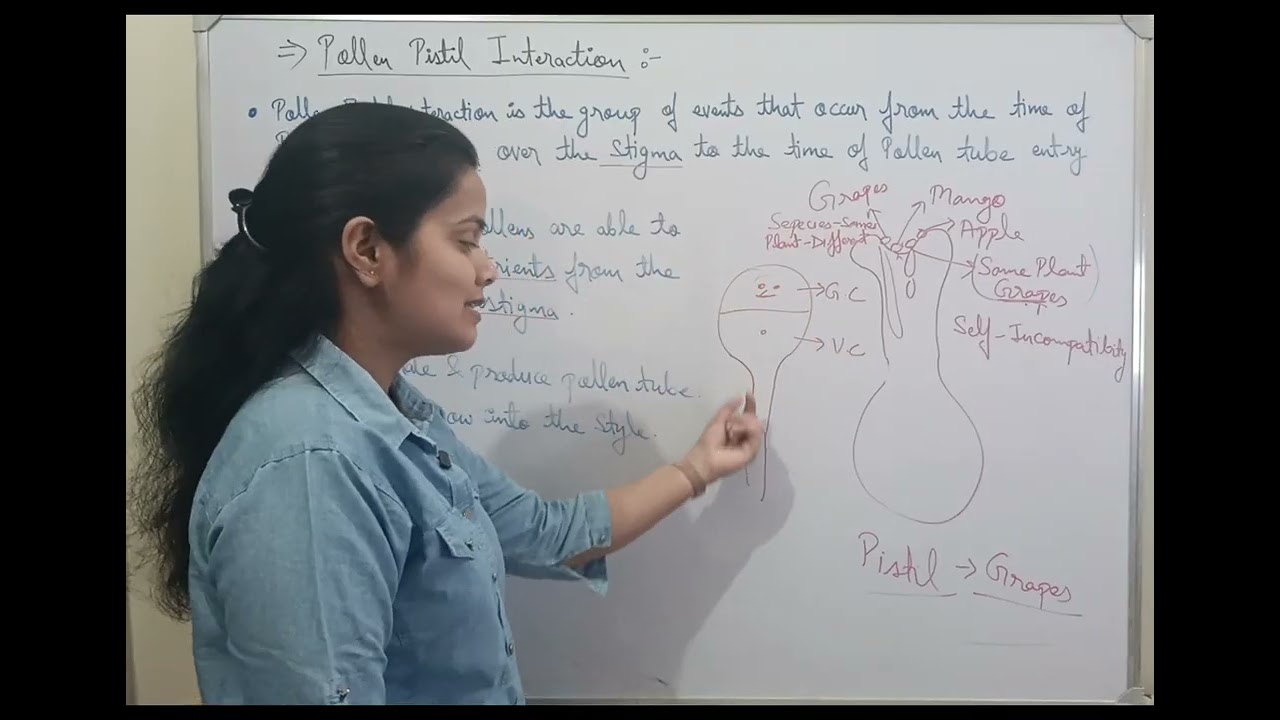 ⇒ Pollen Pistil Interaction :-
• Pollen Pistil Interaction is the group of events that occur from the time of
over the Stigma to the time of Pollen tube entry
Pollens are able to
from the
stigma.
& produce pollen tube.
into the Style.
Grapes
Mango
Sepecies-Same
Plant-Different
Apple
Same Plant
Grapes
G.C
Self-Incompatibility
V.C
Pistil → Grapes